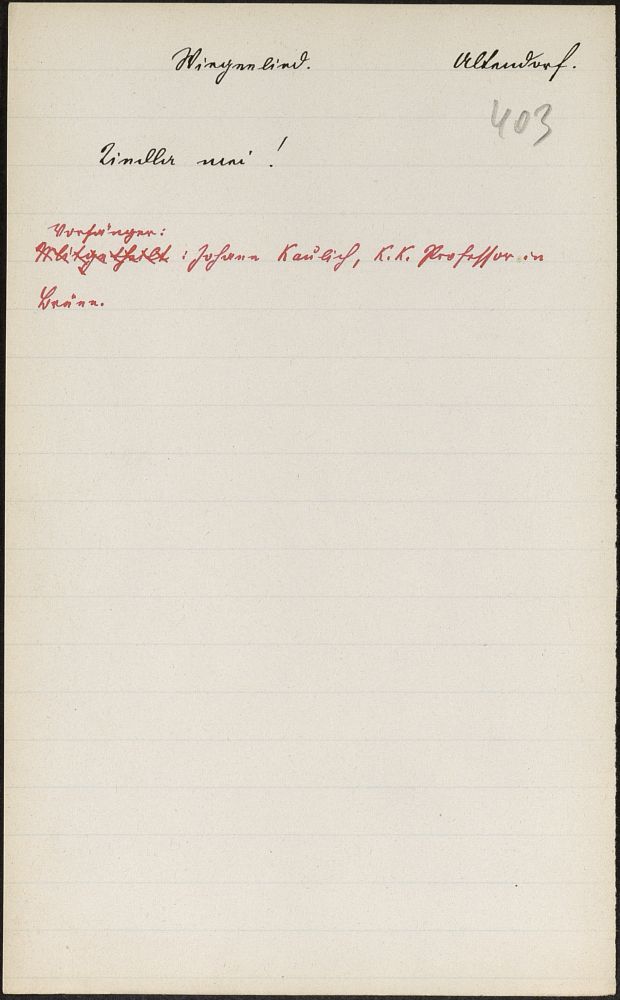 Wiegenlied. Altendorf.
403
Zindler mei !
Vorsänger:
Mitgetheilt : Johann Kaulich, K. K. Professor in
Brünn.